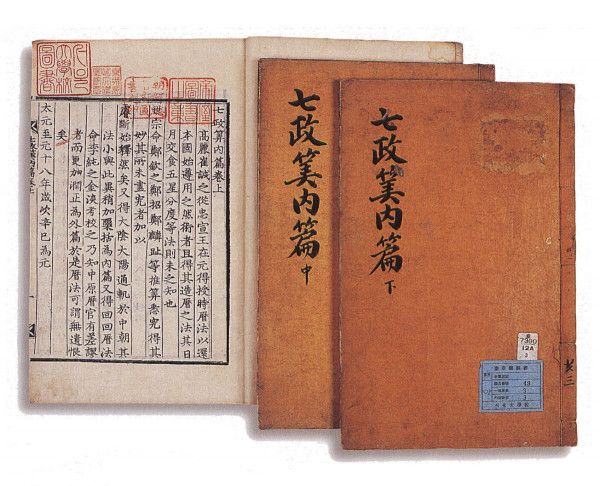 七政算內篇卷上
高麗崔誠之從忠宣王在元得授時曆法以還
本國始遵用之然術者且得其造曆之法其日
月交食五星分度等法則未之知也
世宗命鄭欽之鄭招鄭麟趾等推算悉究得其
妙其所未盡究者加以
睿斷始釋然矣又得大陰大陽通軌於中朝其
法小與此異稍加櫽括為內篇又得回回曆法
命李純之金淡考校之乃知中原曆官有差謬
者而更加潤正為外篇於是曆法可謂無遺恨
矣
太元至元十八年歲次辛巳為元
大學校
圖書
七政筭内篇
中
七政筭内篇
下
12A
3
奎章閣圖書
3
3
大學校
共三